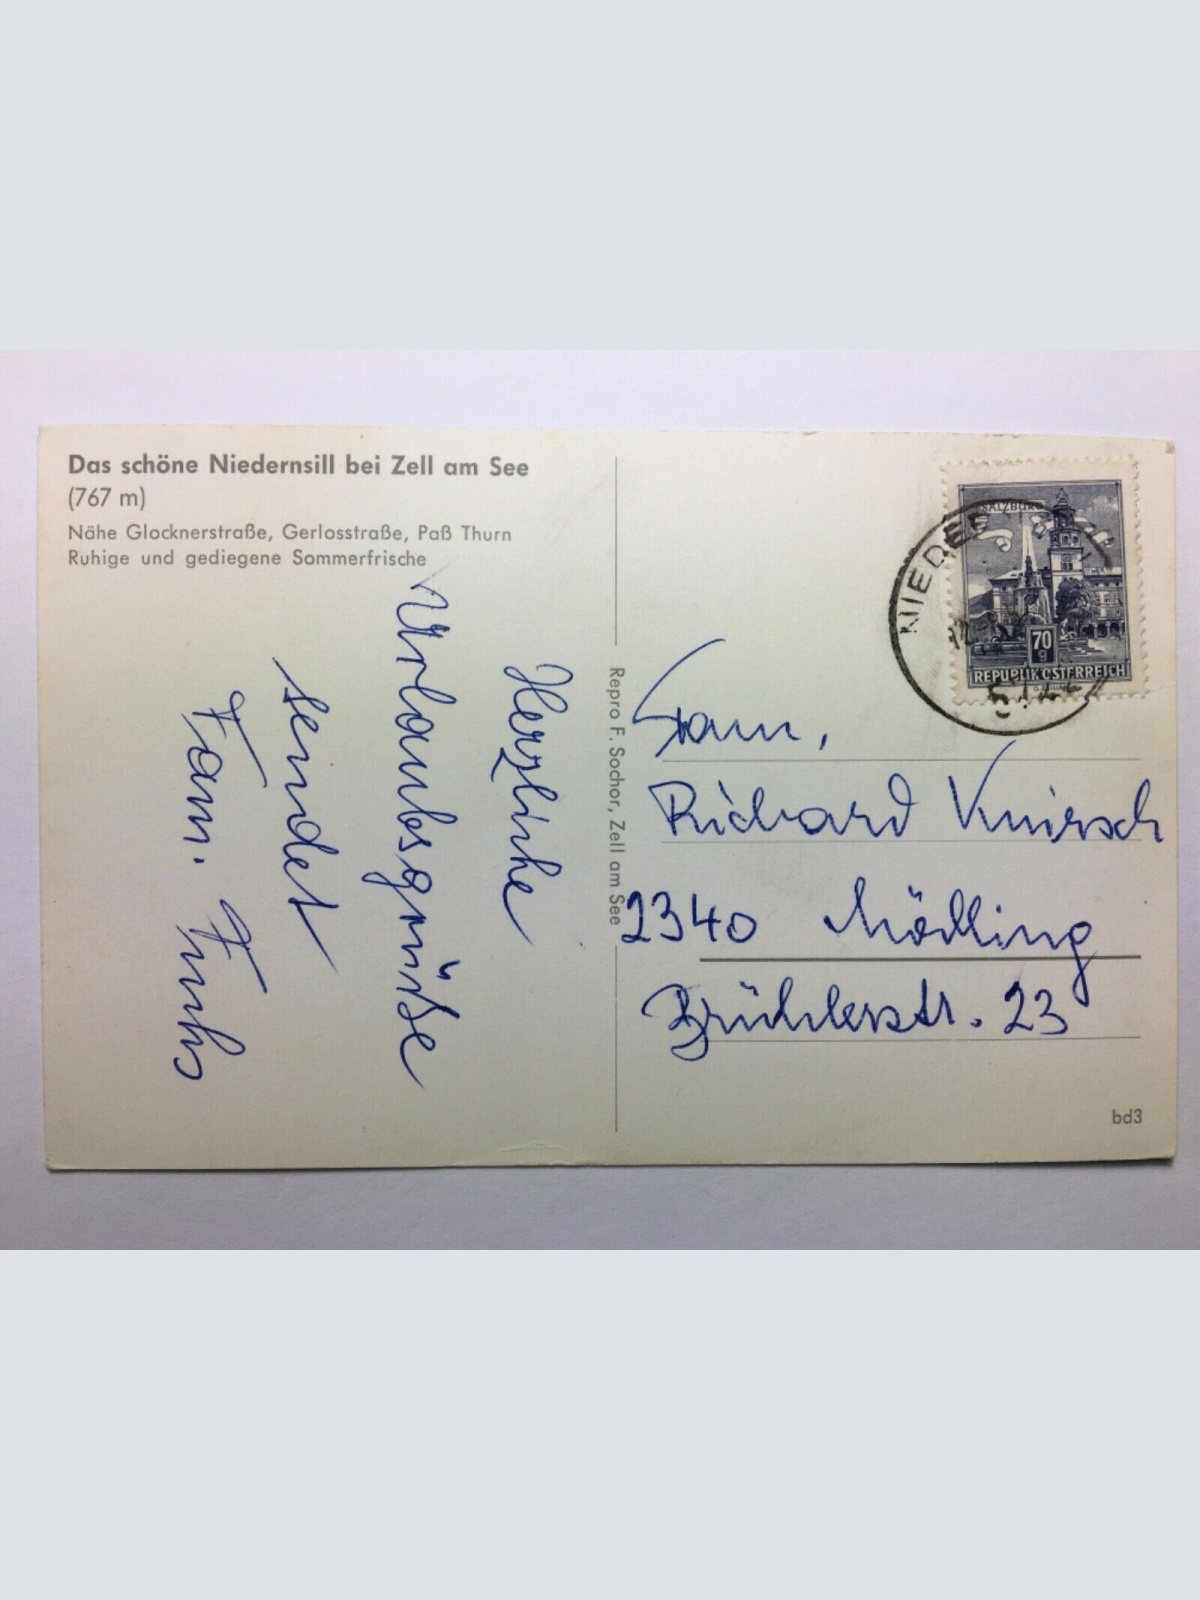 Das schöne Niedernsill bei Zell am See
(767 m)
Nähe Glocknerstraße, Gerlosstraße, Paß Thurn
Ruhige und gediegene Sommerfrische
Herzliche
Urlaubsgrüße
sendet
Fam. Fuchs
Repro F. Sochor, Zell am See
SALZBURG
70
g
REPUBLIK ÖSTERREICH
Fam,
Richard Knirsch
2340 Mödling
Brühlerstr. 23
bd3